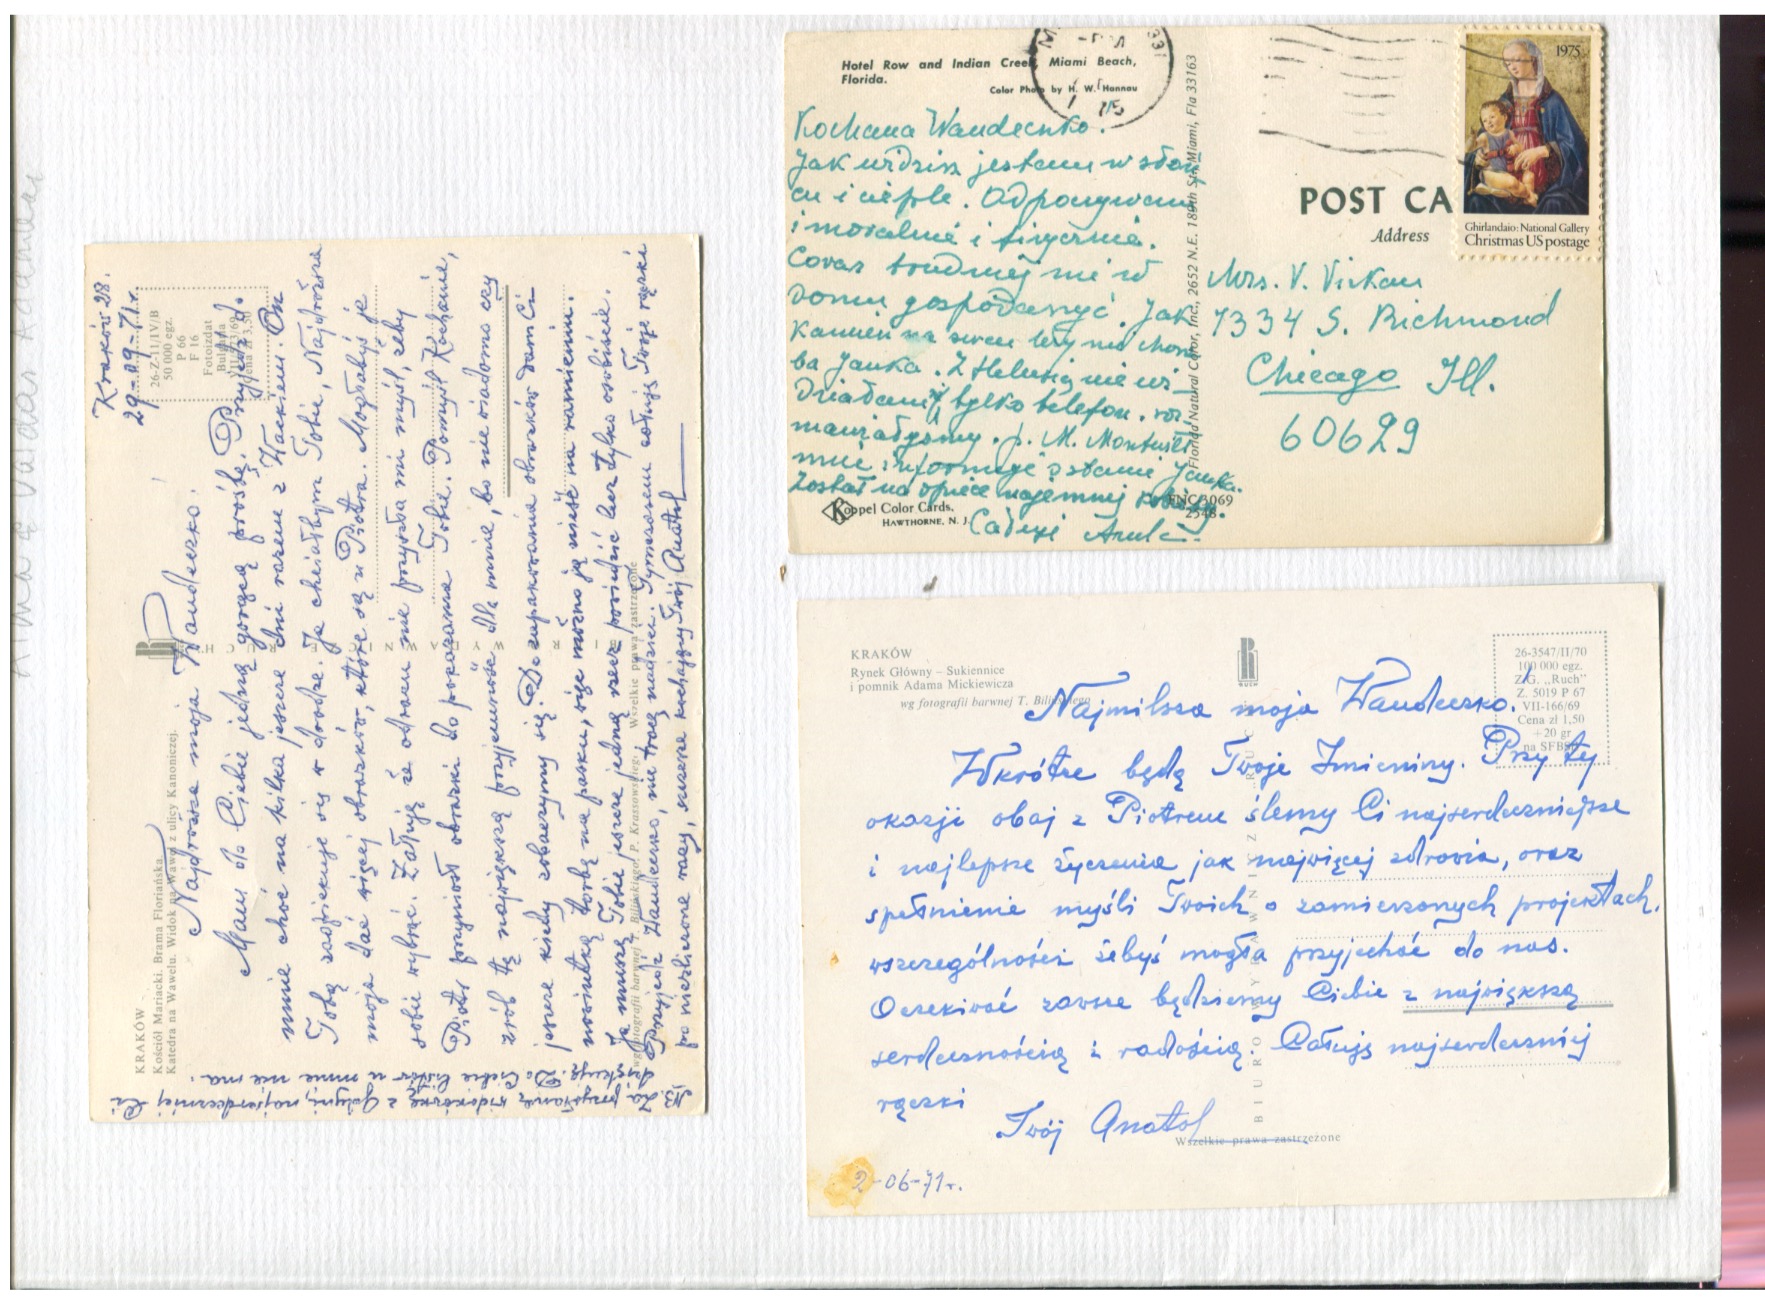 Kraków 28.
29-09-71 r.
26-Z-11/IV/B
50 000 egz.
P 66
F 16
Fotoizdat
Bułgaria
VIII-773/69
Cena zł 3,50
KRAKÓW
Kościół Mariacki. Brama Floriańska.
Katedra na Wawelu. Widok na Wawel z ulicy Kanoniczej.
Najdroższa moja Wandeczko!
Mam do Ciebie jedną gorącą prośbę. Przyjedź do
mnie choć na kilka jeszcze dni razem z Wackiem. On
Tobą zaopiekuje się w drodze. Ja chciałbym Tobie, Najdroższa
moja dać więcej obrazków, które są u Piotra. Mogłabyś je
sobie wybrać. Żałuję że odrazu nie przyszła mi myśl, żeby
Piotr przyniósł obrazki do pokazania Tobie. Pomyśl Kochanie,
zrób tę największą przyjemność dla mnie, bo nie wiadomo czy
jeszcze kiedy zobaczymy się. Do zapakowania obrazków dam Ci
nowiutką torbę na pasku, więc można ją nieść na ramieniu.
Ja muszę Tobie jeszcze jedną rzecz powiedzieć lecz tylko osobiście.
Przyjedź Wandeczko, nie tracę nadziei. Tymczasem całuję Twoje rączki
po niezliczone razy, zawsze kochający Twój Anatol
wg fotografii barwnej T. Bilińskiego i P. Krassowskiego. Wszelkie prawa zastrzeżone
NB. Za przysłaną widokówkę z Gdyni, najserdeczniej Ci
dziękuję. Do Ciebie listów u mnie nie ma.
Hotel Row and Indian Creek, Miami Beach,
Florida.
Color Photo by H. W. Hannau
Kochana Wandeczko.
Jak widzisz jestem w słoń
cu i cieple. Odpoczywam
i moralnie i fizycznie.
Coraz trudniej mi w
domu gospodarzyć. Jak
kamień na sercu leży mi choro
ba Janka. Z Helusią nie wi
działam, tylko telefon. roz
mawiałyśmy. p. M.
mnie informuje o stanie Janka.
Został na opiece najemnej kobiety.
Całuję
Koppel Color Cards.
HAWTHORNE, N. J.
FNC 3069
2548
Florida Natural Color, Inc., 2652 N.E. 189th St., Miami, Fla 33163
POST CA
Address
1975
Ghirlandaio: National Gallery
Christmas US postage
Mrs. V. Virkau
7334 S. Richmond
Chicago Ill.
60629
KRAKÓW
Rynek Główny – Sukiennice
i pomnik Adama Mickiewicza
wg fotografii barwnej T. Bilińskiego
RUCH
26-3547/II/70
100 000 egz.
Z.G. „Ruch”
Z. 5019 P 67
VII-166/69
Cena zł 1,50
+20 gr
na SFBS
Najmilsza moja Wandeczko.
Wkrótce będą Twoje Imieniny. Przy tej
okazji obaj z Piotrem ślemy Ci najserdeczniejsze
i najlepsze życzenia jak najwięcej zdrowia, oraz
spełnienie myśli Twoich o zamierzonych projektach,
wszczególności żebyś mogła przyjechać do nas.
Oczekiwać zawsze będziemy Ciebie z największą
serdecznością i radością. Całuję najserdeczniej
rączki
Twój Anatol
Wszelkie prawa zastrzeżone
2-06-71 r.